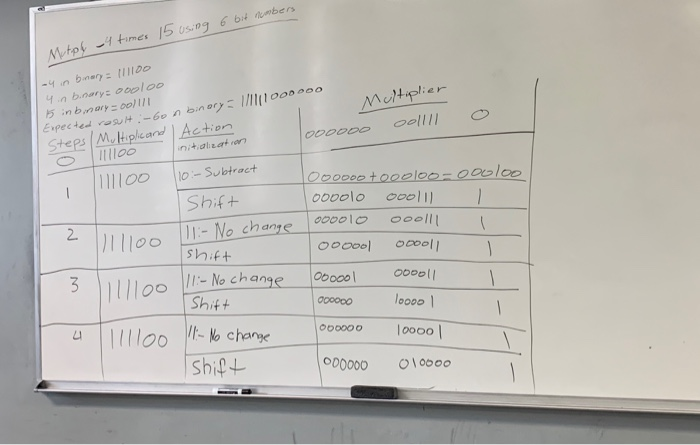 Mutiply -4 times 15 using 6 bit numbers
-4 in binary = 111100
4 in binary = 000100
15 in binary = 001111
Expected result :- -60 in binary = 111111000000
Multiplier
Steps Multiplicand Action 000000 001111 0
0 111100 initialization
1 111100 10:- Subtract 000000 + 000100 = 000100
Shift 000010 000111 1
2 111100 11:- No change 000010 000111 1
shift 000001 000011 1
3 111100 11:- No change 000001 000011 1
Shift 000000 100001 1
4 111100 11:- No change 000000 100001 1
Shift 000000 010000 1